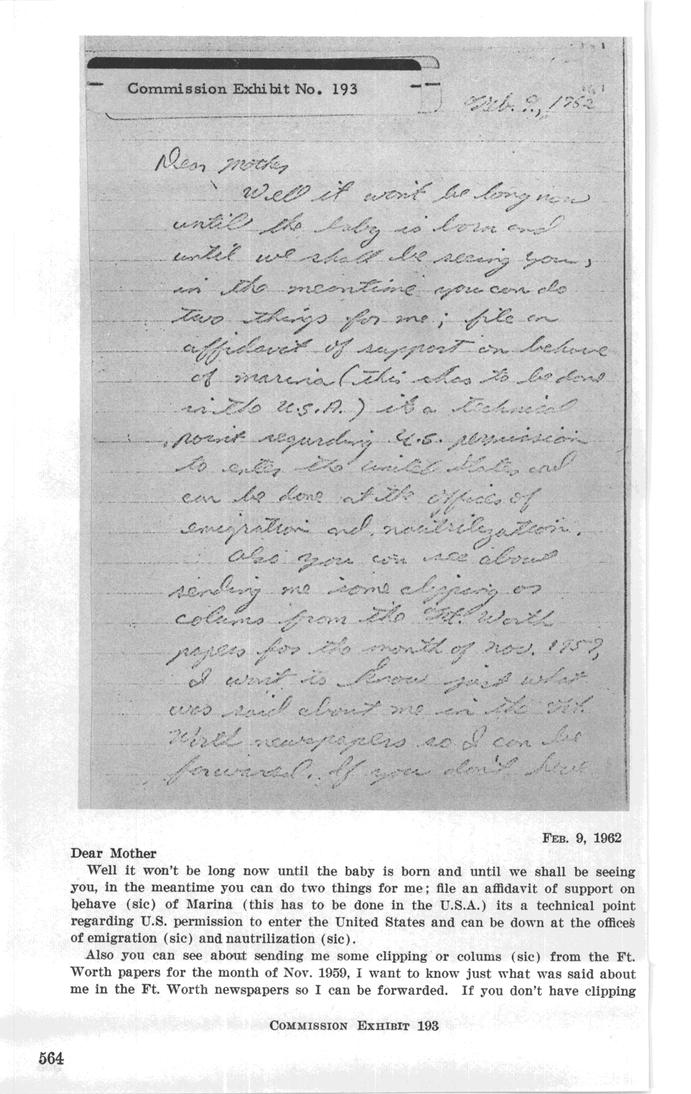 Commission Exhibit No. 193
Feb. 9, 1962
Dear Mother
Well it won't be long now
until the baby is born and
until we shall be seeing you,
in the meantime you can do
two things for me; file an
affidavit of support on behave
of marina (this has to be done
in the U.S.A.) its a technical
point regarding U.S. permission
to enter the United States and
can be done at the offices of
emigration and nautrilization.
Also you can see about
sending me some clipping or
colums from the Ft. Worth
papers for the month of nov. 1959,
I want to know just what
was said about me in the Ft.
Worth newspapers so I can be
forwarned. If you don't have
FEB. 9, 1962
Dear Mother
Well it won't be long now until the baby is born and until we shall be seeing
you, in the meantime you can do two things for me; file an affidavit of support on
behave (sic) of Marina (this has to be done in the U.S.A.) its a technical point
regarding U.S. permission to enter the United States and can be down at the offices
of emigration (sic) and nautrilization (sic).
Also you can see about sending me some clipping or colums (sic) from the Ft.
Worth papers for the month of Nov. 1959, I want to know just what was said about
me in the Ft. Worth newspapers so I can be forwarded. If you don't have clipping
COMMISSION EXHIBIT 193
564